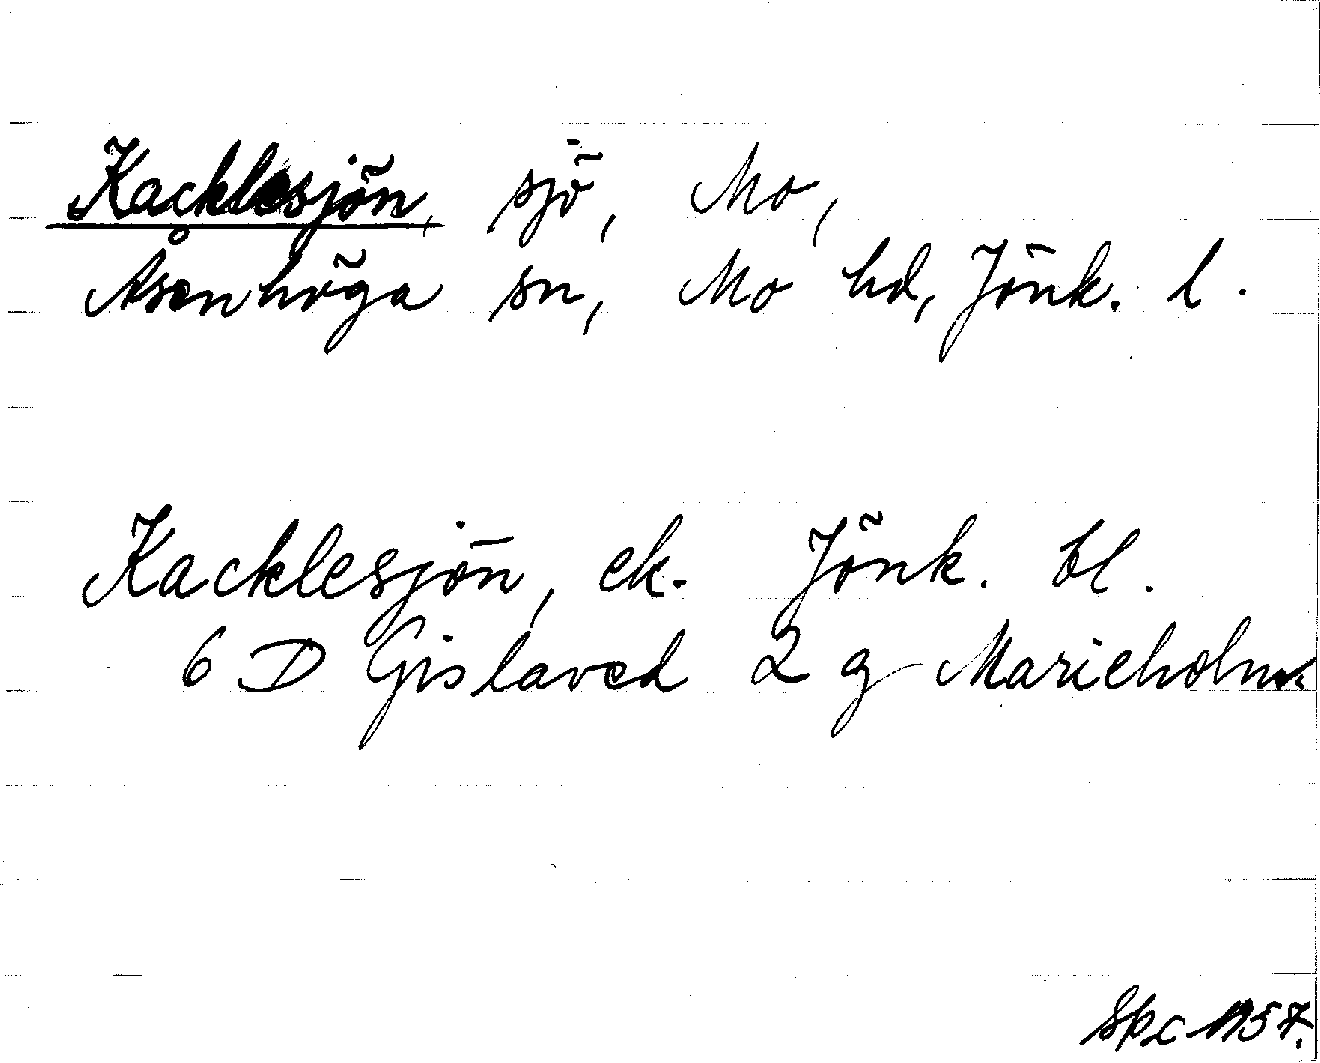 Kacklesjön, sjö, Mo,
Åsenhöga sn, Mo hd, Jönk. l.
Kacklesjön, ek. Jönk. bl.
6 D Gislaved 2 g Marieholm
1957.